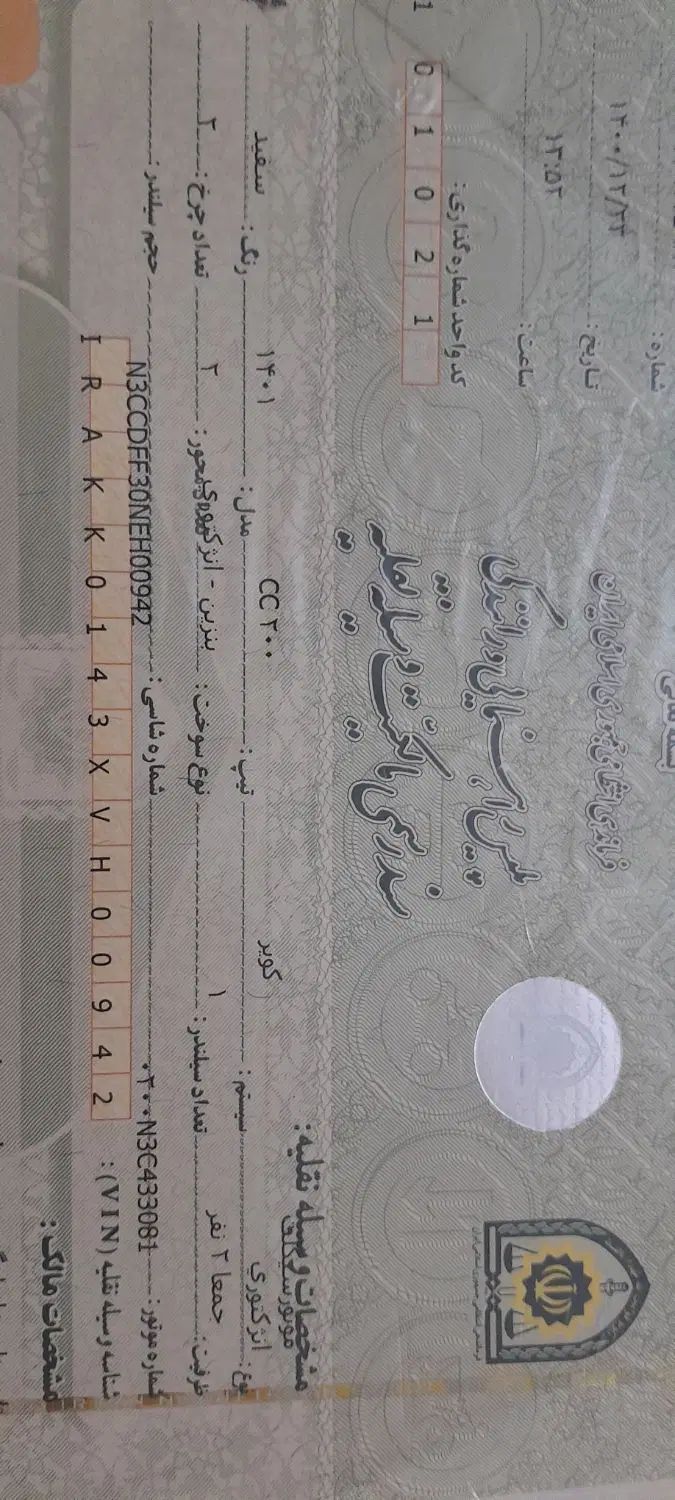 شماره :
تاریخ : ۱۴۰۰/۱۲/۲۳
ساعت : ۱۳:۵۲
کد واحد شماره گذاری :
1 0 1 0 2 1
فرماندهی انتظامی جمهوری اسلامی ایران
پلیس راهنمایی و رانندگی
سند رسمی مالکیت وسیله نقلیه
مشخصات وسیله نقلیه :
نوع : موتورسیکلت انژکتوری سیستم : کویر تیپ : CC ۲۰۰ مدل : ۱۴۰۱ رنگ : سفید
ظرفیت : جمعا ۲ نفر تعداد سیلندر : ۱ نوع سوخت : بنزین - انژکتوری تعداد محور : ۲ تعداد چرخ : ۲
شماره موتور : ۰۲۰۰N3C433081 شماره شاسی : N3CCDFF30NEH00942 حجم سیلندر :
شناسه وسیله نقلیه (VIN) : I R A K K 0 1 4 3 X V H 0 0 9 4 2
مشخصات مالک :